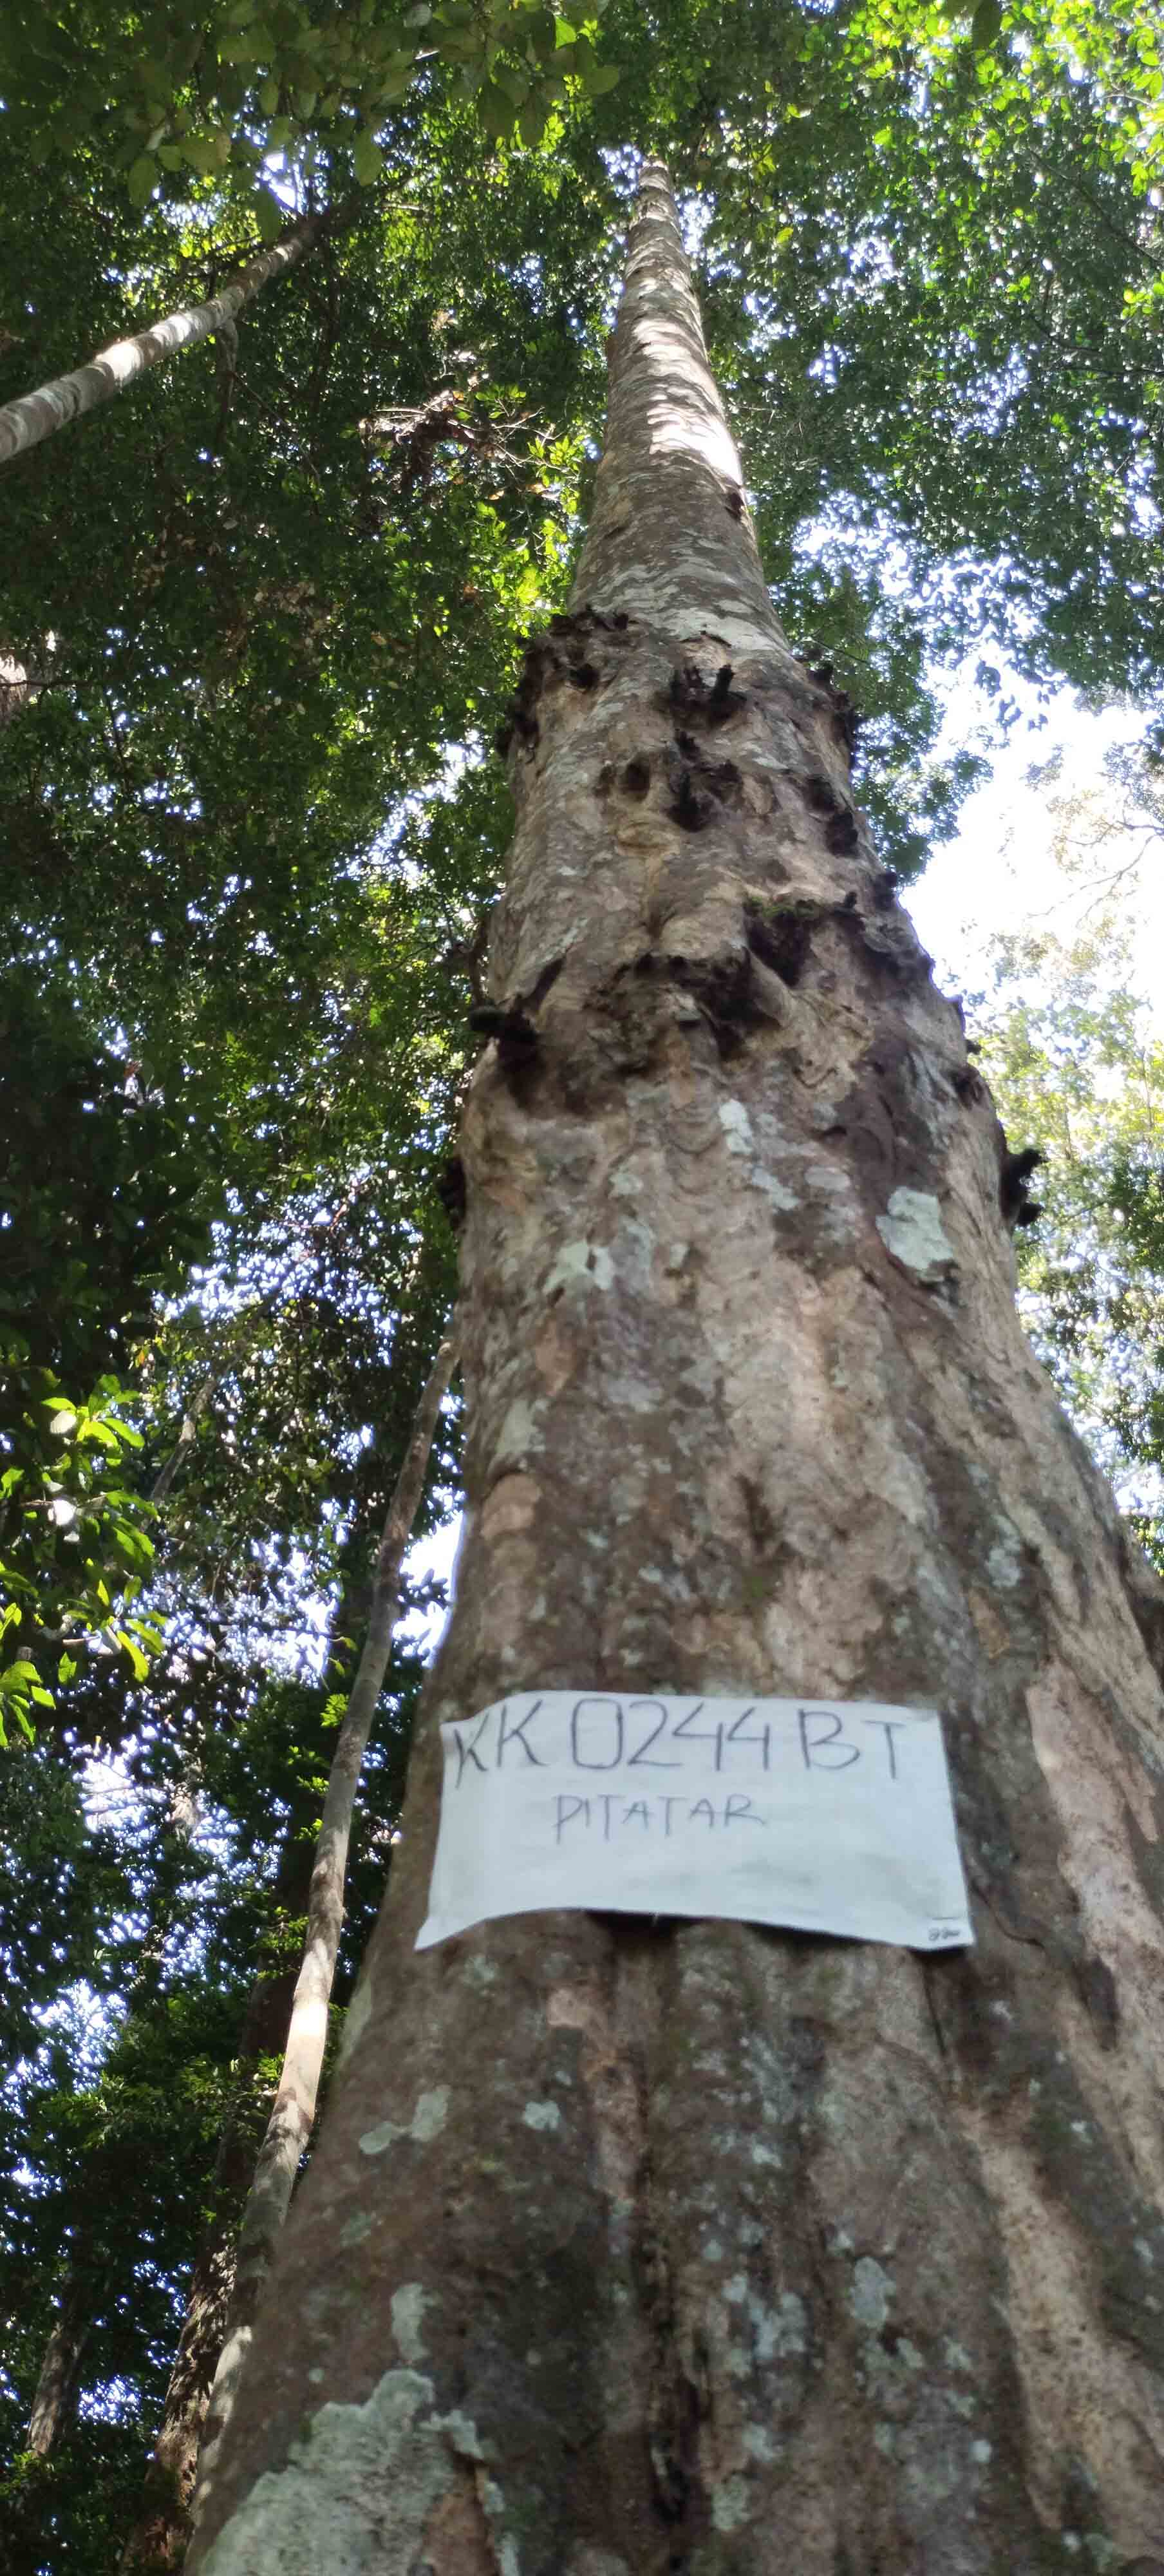 KK0244BT
PITATAR